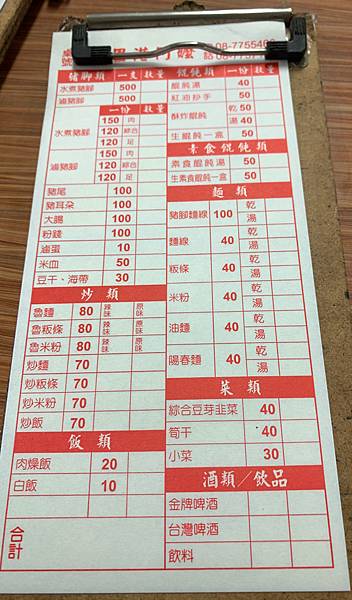 桌號
08-7755460
豬腳類 一支 數量
水煮豬腳 500
滷豬腳 500
一份 數量
水煮豬腳 150 肉
120 綜合
120 足
滷豬腳 150 肉
120 綜合
120 足
豬尾 100
豬耳朵 100
大腸 100
粉錢 100
滷蛋 10
米血 50
豆干、海帶 30
炒類
魯麵 80 辣味 原味
魯粄條 80 辣味 原味
魯米粉 80 辣味 原味
炒麵 70
炒粄條 70
炒米粉 70
炒飯 70
飯類
肉燥飯 20
白飯 10
合計
餛飩類 一份 數量
餛飩湯 40
紅油抄手 50
酥炸餛飩 乾 50
湯 40
生餛飩一盒 50
素食餛飩類
素食餛飩湯 50
生素食餛飩一盒 50
麵類
豬腳麵線 100 乾
湯
麵線 40 乾
湯
粄條 40 乾
湯
米粉 40 乾
湯
油麵 40 乾
湯
陽春麵 40 乾
湯
菜類
綜合豆芽韭菜 40
筍干 40
小菜 30
酒類/飲品
金牌啤酒
台灣啤酒
飲料